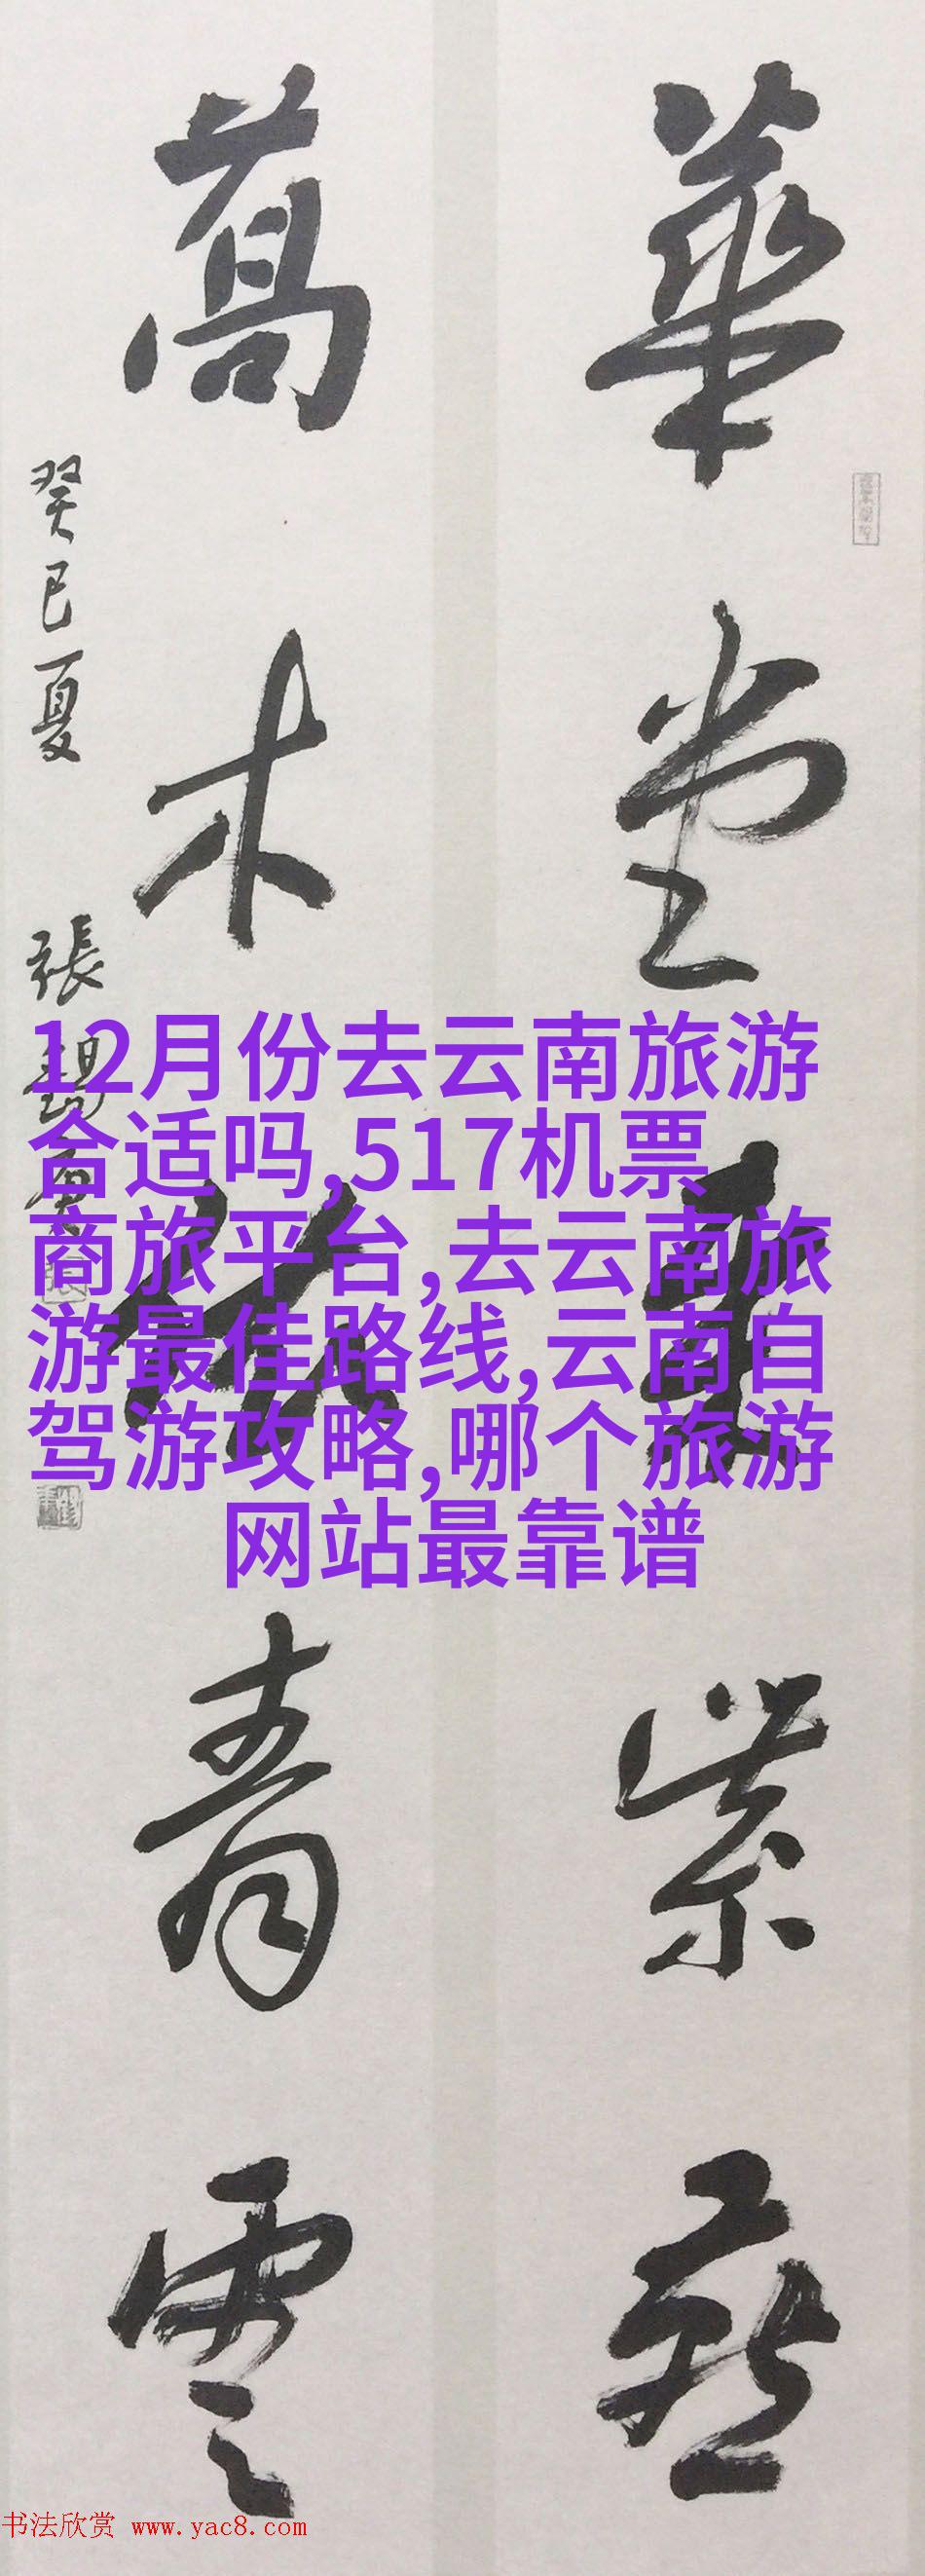 華堂紫
萬木青雲
癸巳夏 張
12月份去云南旅游
合适吗,517机票
商旅平台,去云南旅
游最佳路线,云南自
驾游攻略,哪个旅游
网站最靠谱
书法欣赏 www.yac8.com